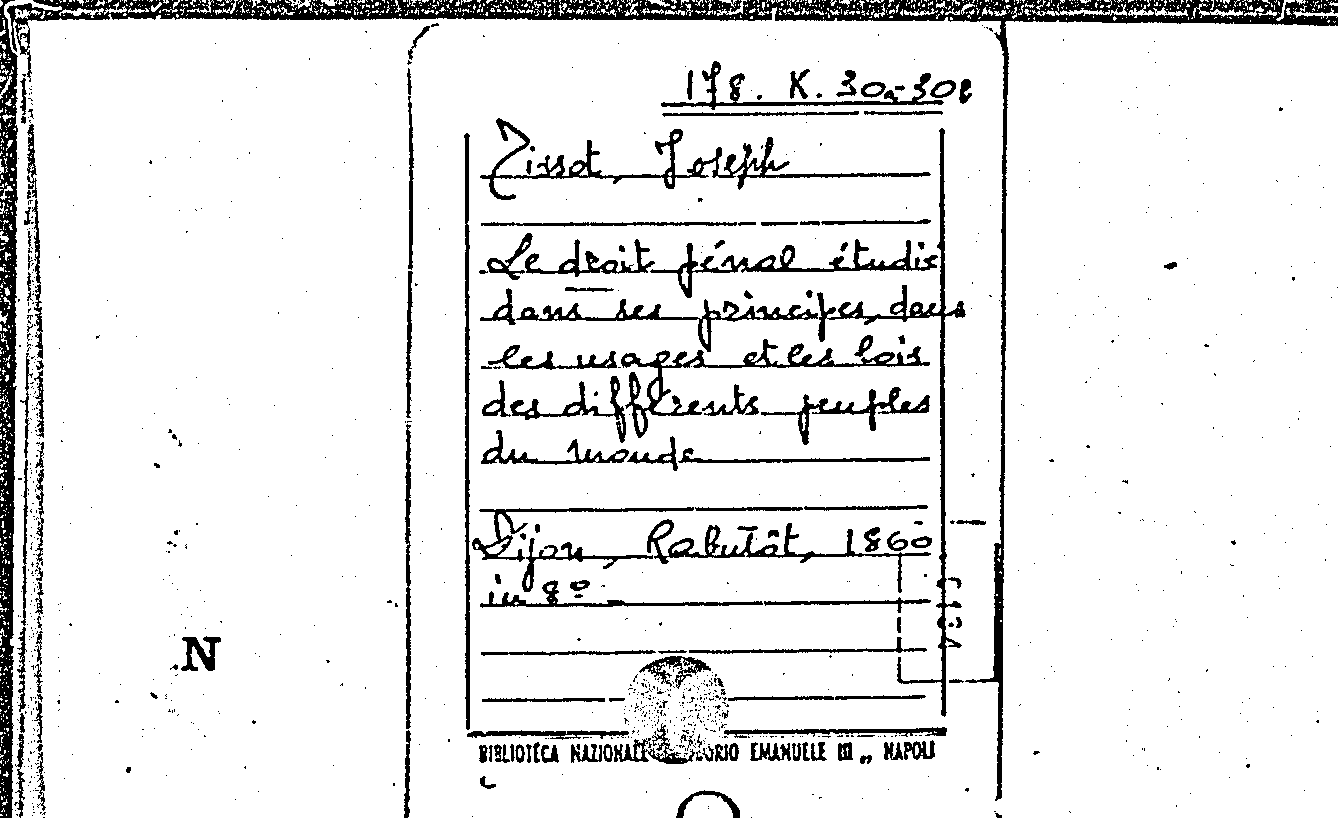 178. K. 30a-30b
Tissot, Joseph
Le droit pénal étudié
dans ses principes, dans
les usages et les lois
des différents peuples
du monde
Dijon, Rabutôt, 1860
in 8º
N
BIBLIOTECA NAZIONALE EMANUELE III „ NAPOLI